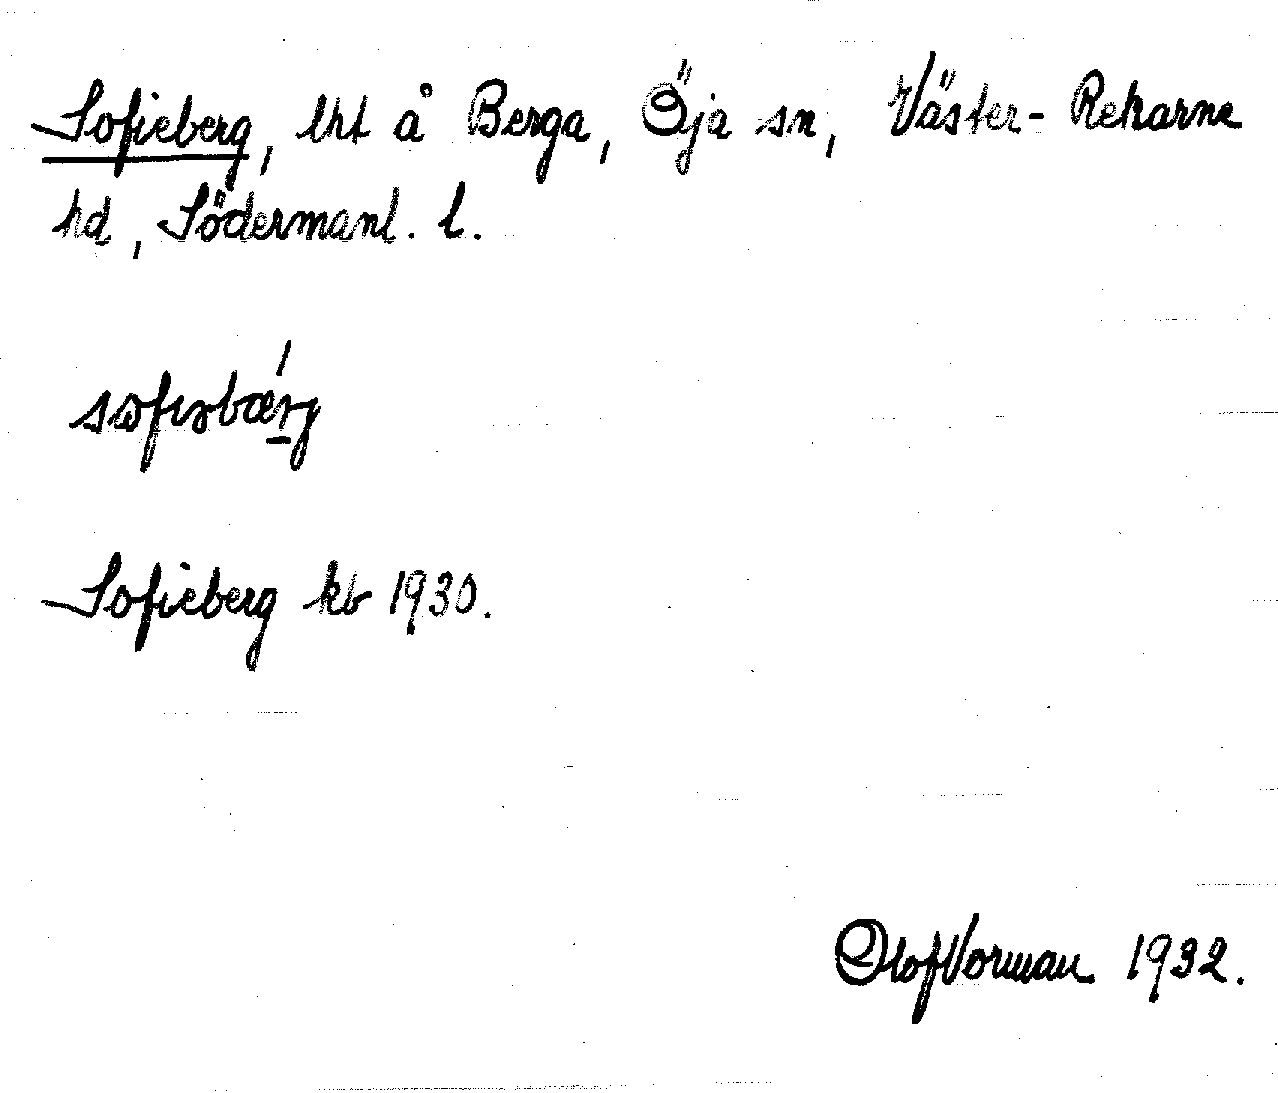 Sofieberg, lht å Berga, Öja sn, Väster-Rekarne
hd, Södermanl. l.
Sofieberg kb 1930.
Olof Vorman 1932.